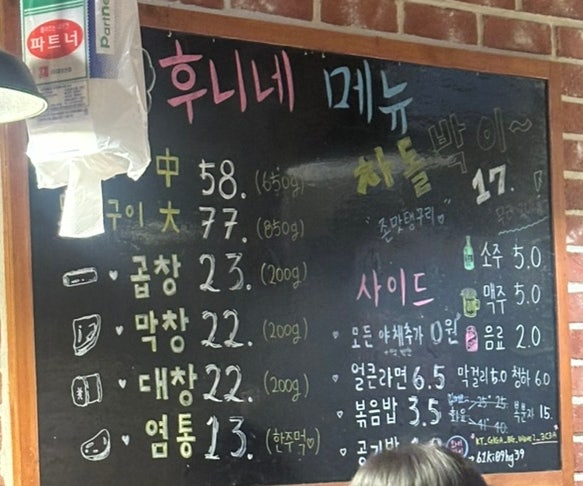 파트너
후니네 메뉴
中 58. (650g)
구이 大 77. (850g)
곱창 23. (200g)
막창 22. (200g)
대창 22. (200g)
염통 13. (한주먹♡)
차돌박이~
17.
"존맛탱구리♡"
사이드
모든 야채추가 0원
얼큰라면 6.5
볶음밥 3.5
공기밥
소주 5.0
맥주 5.0
음료 2.0
막걸리 5.0 청하 6.0
화요 25 25.
41 40.
복분자 15.